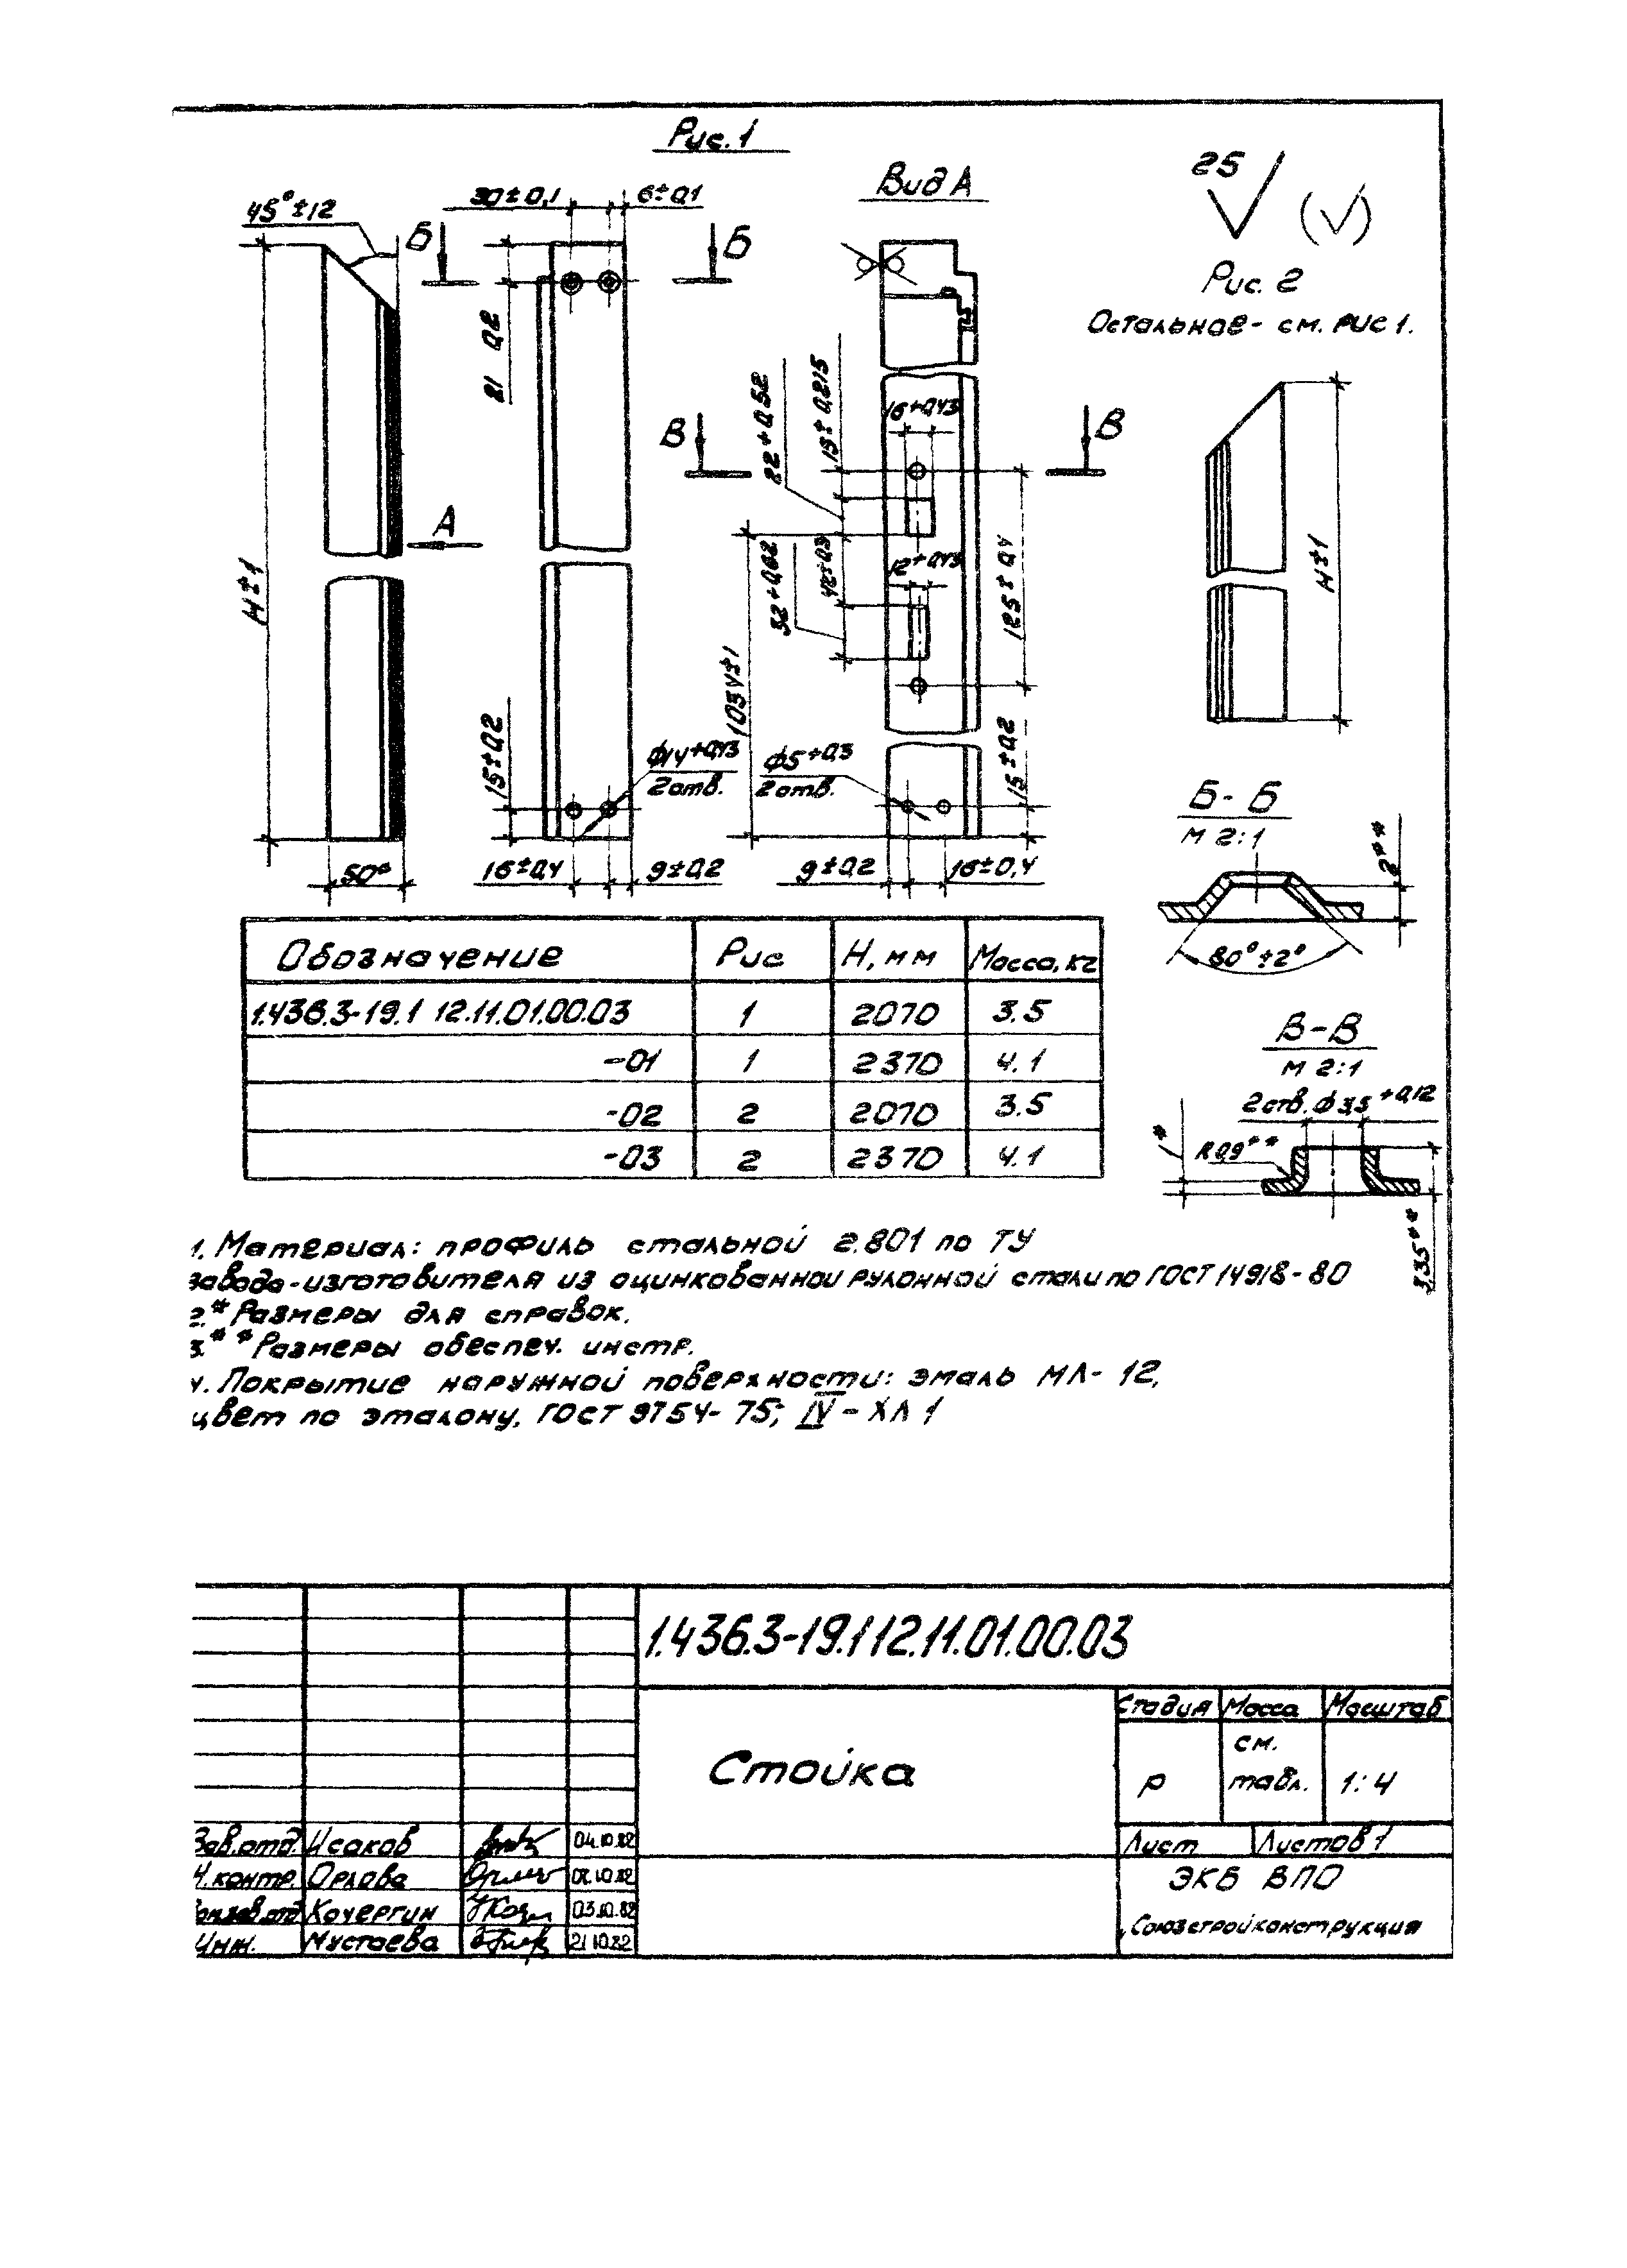 Рис. 1
45°±12
30±0,1
6±0,1
Вид А
25
Б
Б
Рис. 2
Остальное - см. рис 1.
21 0,2
22+0,52
16+0,43
В
В
А
H±1
32+0,62
42±0,3
12+0,43
125±0,4
H±1
15±0,2
ϕ14+0,43
2 отв.
ϕ5+0,3
2 отв.
15±0,2
50*
16±0,4
9±0,2
9±0,2
16±0,4
Б-Б
М 2:1
2**
80°±2°
Обозначение Рис H, мм Масса, кг
1.436.3-19.1 12.11.01.00.03 1 2070 3.5
-01 1 2370 4.1
-02 2 2070 3.5
-03 2 2370 4.1
В-В
М 2:1
2 отв. ϕ 3,5 +0,12
1*
R 0,9**
3,35**
1. Материал: профиль стальной 2.801 по ТУ
завода-изготовителя из оцинкованной рулонной стали по ГОСТ 14918-80
2.* Размеры для справок.
3.** Размеры обеспеч. инстр.
4. Покрытие наружной поверхности: эмаль МЛ-12,
цвет по эталону, ГОСТ 9754-75; IV-ХЛ 1
1.436.3-19.1 12.11.01.00.03
Стойка
Стадия Масса Масштаб
Р см. табл. 1:4
Лист Листов 1
ЭКБ ВПО
Союзстройконструкция
Зав.отд. Исаков 04.10.82
Н.контр. Орлова
Кочергин 03.10.82
Инж. Мустаева 21.10.82